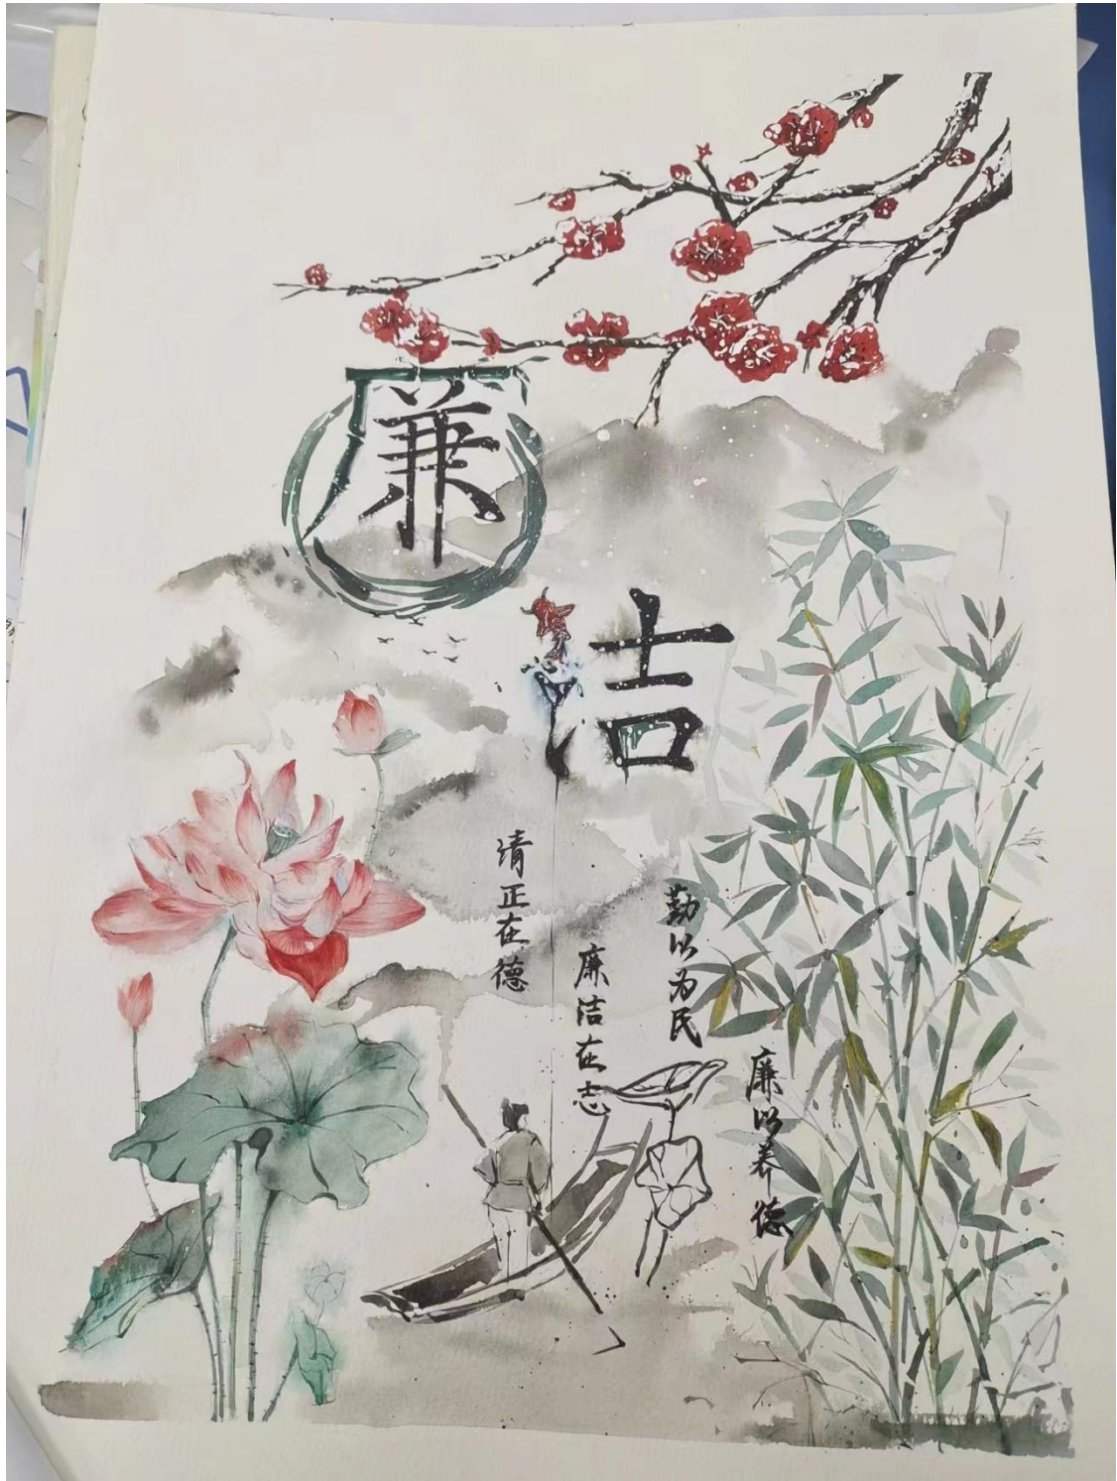 廉
洁
清正在德
廉洁在志
勤以为民
廉以养德